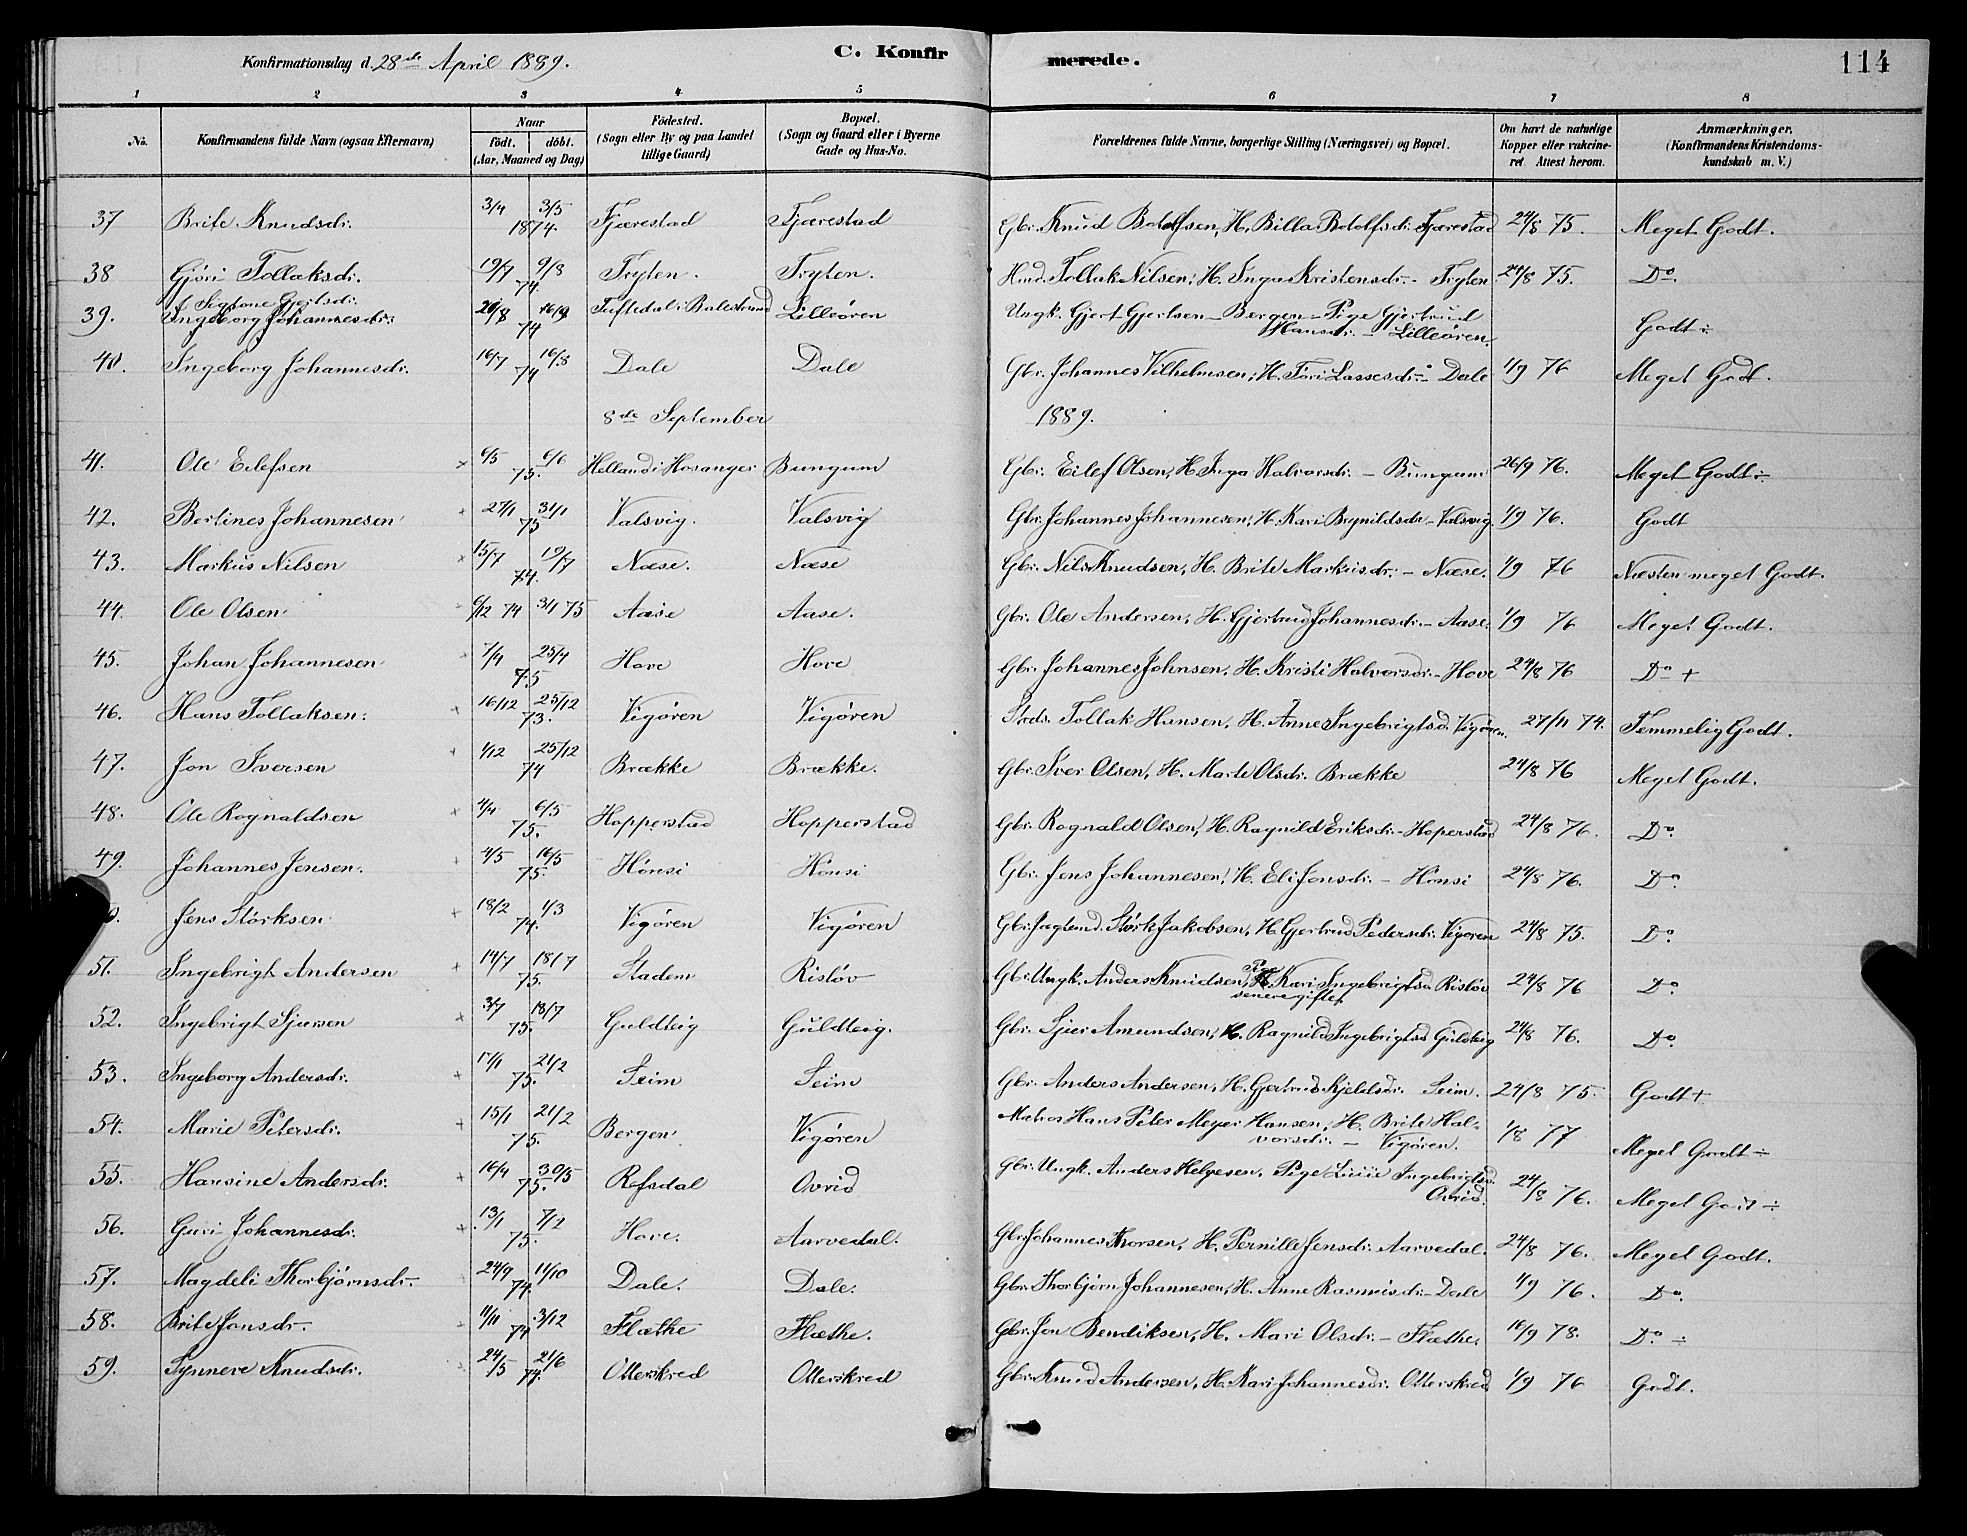 Konfirmationsdag d. 28de April 1889.
C. Konfirmerede.
114
1 2 3 4 5 6 7 8
No. Konfirmandens fulde Navn (ogsaa Efternavn) Naar födt. döbt. (Aar, Maaned og Dag) Födested. (Sogn eller By og paa Landet tillige Gaard) Bopæl. (Sogn og Gaard eller i Byerne Gade og Hus-No. Forældrenes fulde Navne, borgerlige Stilling (Næringsvei) og Bopæl. Om havt de naturlige Kopper eller vakcineret. Attest herom. Anmærkninger. (Konfirmandens Kristendomskundskab m. V.)
37 Brite Knudsdr. 3/4 3/5 1874. Fjærestad Fjærestad Gbr. Knud Botolfsen, H. Billa Botolfsdr. Fjærestad 24/8 75. Meget Godt.
38 Gjöri Tollaksdr. 19/7 9/8 74. Tryten. Tryten. Hmd. Tollak Nilsen, H. Inga Kristensdr. - Tryten 24/8 75. Do.
39. Gjertsdr. Ingeborg Johannesdr. 74 Tuftedal i Balestrand Lilleören Ungk. Gjert Gjertsen - Bergen - Pige Gjertrud Hansdr. - Lilleören. Godt ÷
40. Ingeborg Johannesdr. 16/7 16/8 74 Dale Dale Gbr. Johannes Vilhelmsen, H. Töri Lassesdr. - Dale 1/9 76 Meget Godt.
8de September 1889.
41. Ole Eilefsen × 6/5 6/6 75. Helland i Hosanger Bungum Gbr. Eilef Olsen, H. Inga Halvorsdr. - Bungum 26/9 76. Meget Godt ÷
42. Bertines Johannesen 27/1 31/1 75 Valsvig. Valsvig Gbr. Johannes Johannesen, H. Kari Brynildsdr. - Valsvig. 1/9 76. Godt
43. Markus Nilsen × 15/7 19/7 74. Næse. Næse Gbr. Nils Knudsen, H. Brite Markusdr. - Næse. 1/9 76 Næsten meget Godt.
44. Ole Olsen 6/12 74 3/1 75 Aase Aase. Gbr. Ole Andersen, H. Gjertrud Johannesdr. - Aase. 1/9 76 Meget Godt.
45. Johan Johannesen 7/4 25/4 75 Hove Hove Gbr. Johannes Johnsen, H. Kristi Halvorsdr. - Hove 24/8 76 Do +
46. Hans Tollaksen. 16/12 25/12 73. Vigören Vigören Tollak Hansen, H. Anne Ingebrigtsd. Vigören. 27/11 74. Temmelig Godt.
47. Jon Iversen 1/12 25/12 74 Brække Brække. Gbr. Iver Olsen, H. Marte Olsdr. Brække 24/8 76 Meget Godt.
48. Ole Rognaldsen 4/4 6/5 75. Hopperstad Hopperstad Gbr. Rognald Olsen, H. Ragnild Eriksdr. - Hoperstad 24/8 76. Do.
49. Johannes Jensen. 4/5 16/5 75. Hönsi Hönsi Gbr. Jens Johannesen, H. Eli Jonsdr. - Hönsi 24/8 76. Do.
Jens Störksen 18/2 1/3 74. Vigören Vigören Störk Jakobsen, H. Gjertrud Pedersdr. Vigören 24/8 75. Do.
51. Ingebrigt Andersen 14/7 18/7 75. Stadem Rislöv Gbr. Ungk. Anders Knudsen, Pige Kari Ingebrigtsd. Rislöv senere gifte 24/8 76 Do.
52. Ingebrigt Sjursen 3/7 18/7 75. Guldteig Guldteig. Gbr. Sjur Amundsen, H. Ragnild Ingebrigtsd. Guldteig 24/8 76. Do.
53. Ingeborg Andersdr. 17/1 21/2 75. Seim Seim Gbr. Anders Andersen, H. Gjertrud Kjeldsdr. Seim. 24/8 75. Godt +
54. Marie Petersdr. 15/1 21/2 75. Bergen Vigören Matros Hans Peter Meyer Hansen, H. Brite Halvorsdr. - Vigören. 1/8 77 Meget Godt ÷
55. Hansine Andersdr. 16/4 30/5 75. Refsdal Ovrid Gbr. Ungk. Anders Helgesen, Pige Ingebrigtsd. Ovrid. 24/8 76. Meget Godt ÷
56. Guri Johannesdr. 13/1 7/2 75. Hove. Aarvedal. Gbr. Johannes Thorsen, H. Pernille Jensdr. Aarvedal. 24/8 76. Meget Godt.
57. Magdeli Thorbjörnsdr. 24/9 11/10 74. Dale. Dale. Gbr. Thorbjörn Johannesen, H. Anne Rasmusdr. - Dale 1/9 76. Do.
58. Brite Jonsdr. 11/11 3/12 74 Flæthe Flæthe. Gbr. Jon Bendiksen, H. Mari Olsdr. - Flæthe. 16/9 78. Do ÷
59. Synneve Knudsdr. 24/5 21/6 74. Otterskred Otterskred Gbr. Knud Andersen, H. Kari Johannesdr. Otterskred 1/9 76 Godt.